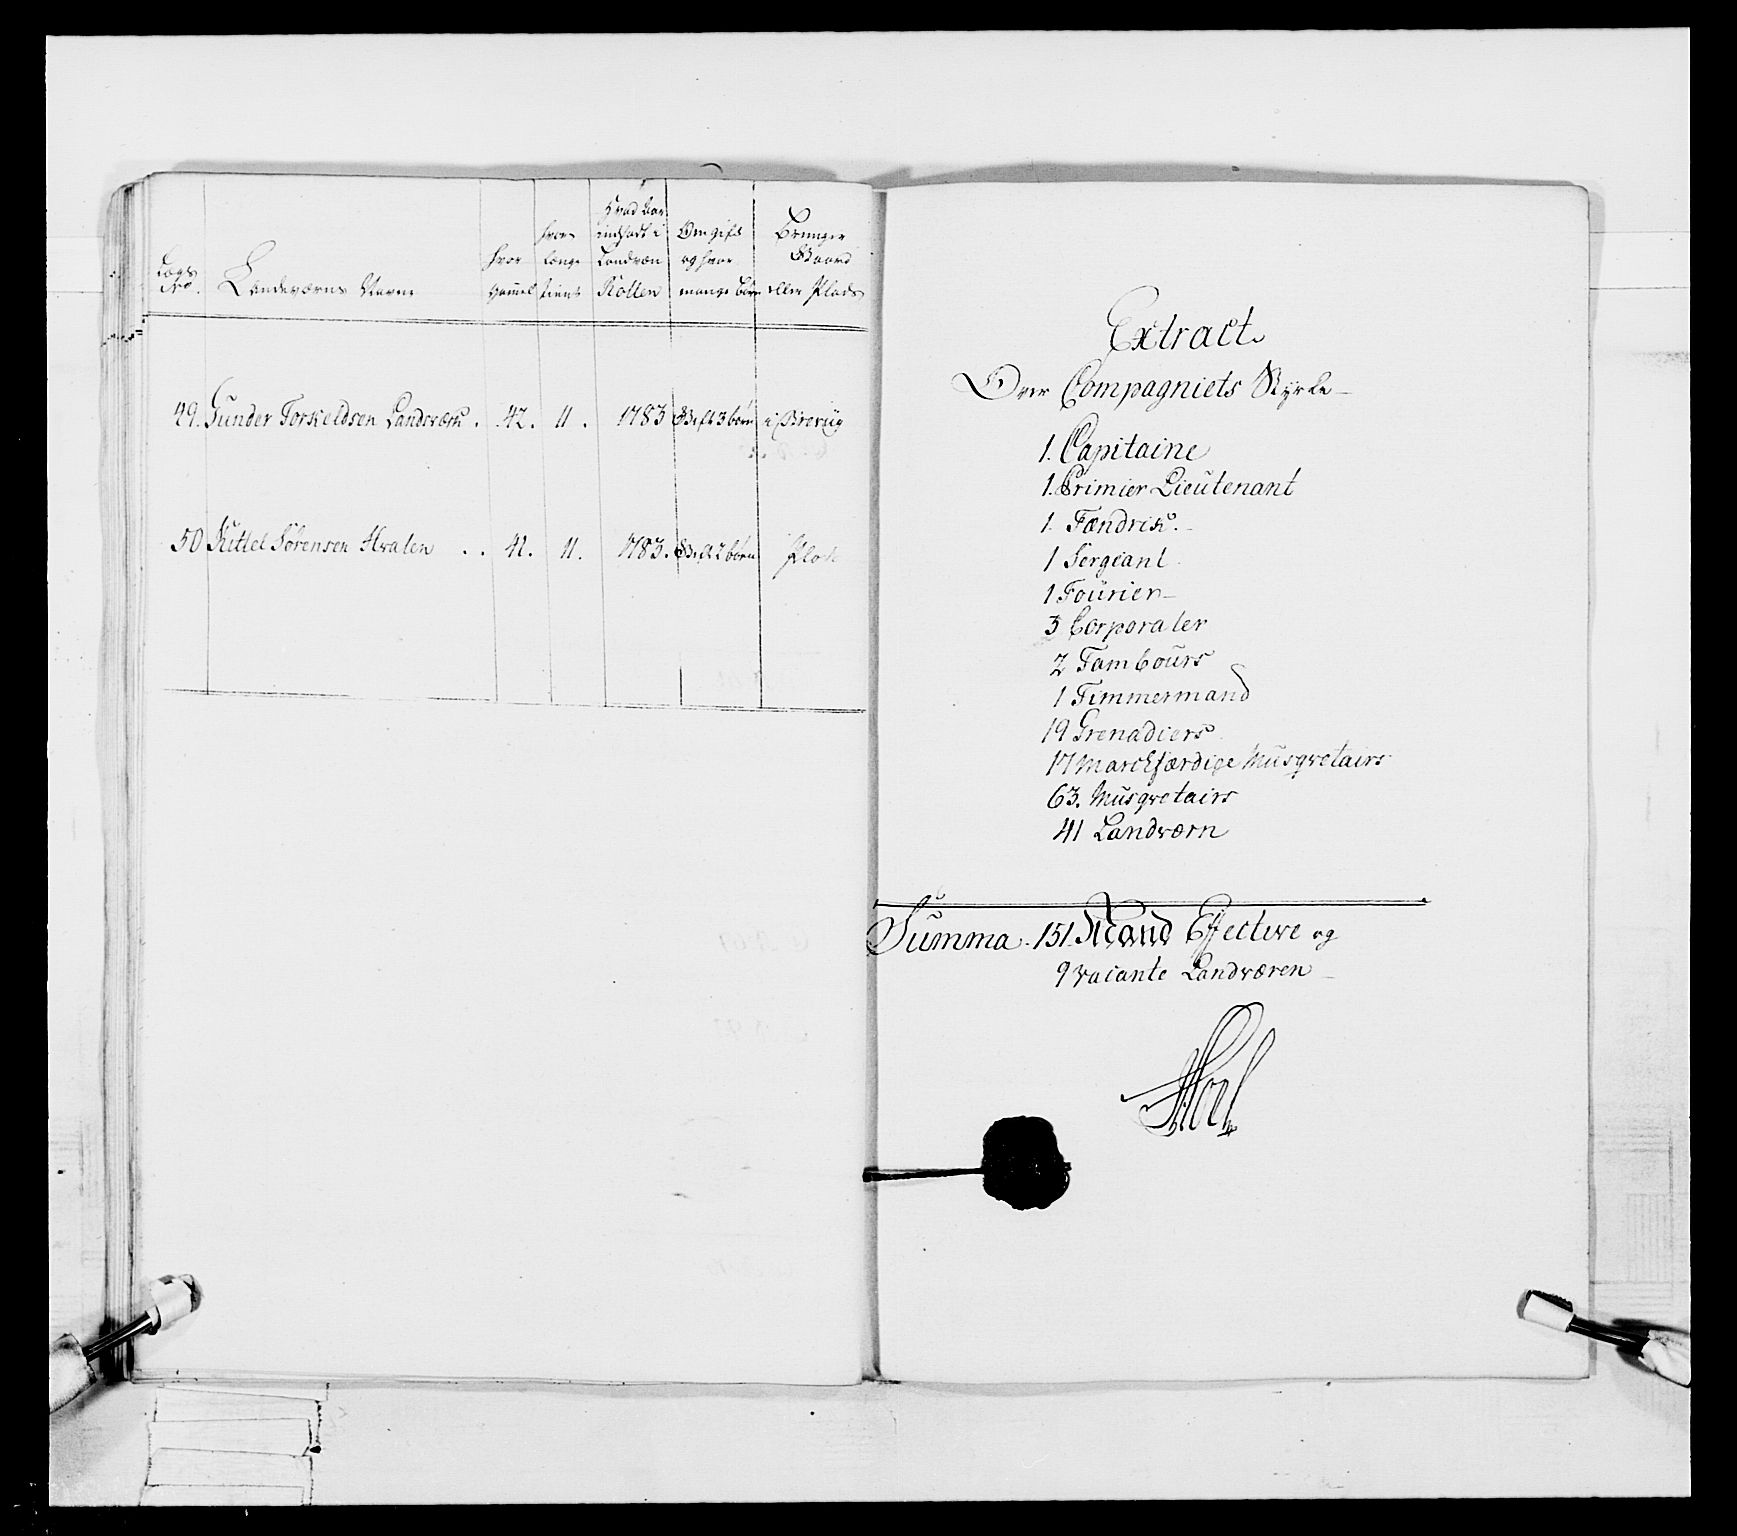 Lægs No.
Landeværns Navne
hvor gammel
hvor længe tient
Hvad Aar indsadt i Landværn Rollen
Om gift og hvor mange Børn
Bruuger Gaard eller Plads
49. Gunder Torkeldsen Landværk . 42. 11. 1783 Gift 3 børn i
50 Kittel Sørensen Hvalen . . 41. 11. 1783. Gift 2 børn Plads
Extract
Over Compagniets Styrke
1. Capitaine
1. Primier Lieutenant
1. Fændrik.
1 Sergeant
1 Fourier
3 Corporaler
2 Tambours
1 Timmermand
19 Grenadiers
17 Marchfærdige Musqvetairs
63. Musqvetairs
41 Landværn
Summa. 151. Mand Effective og
9 vacante Landværen